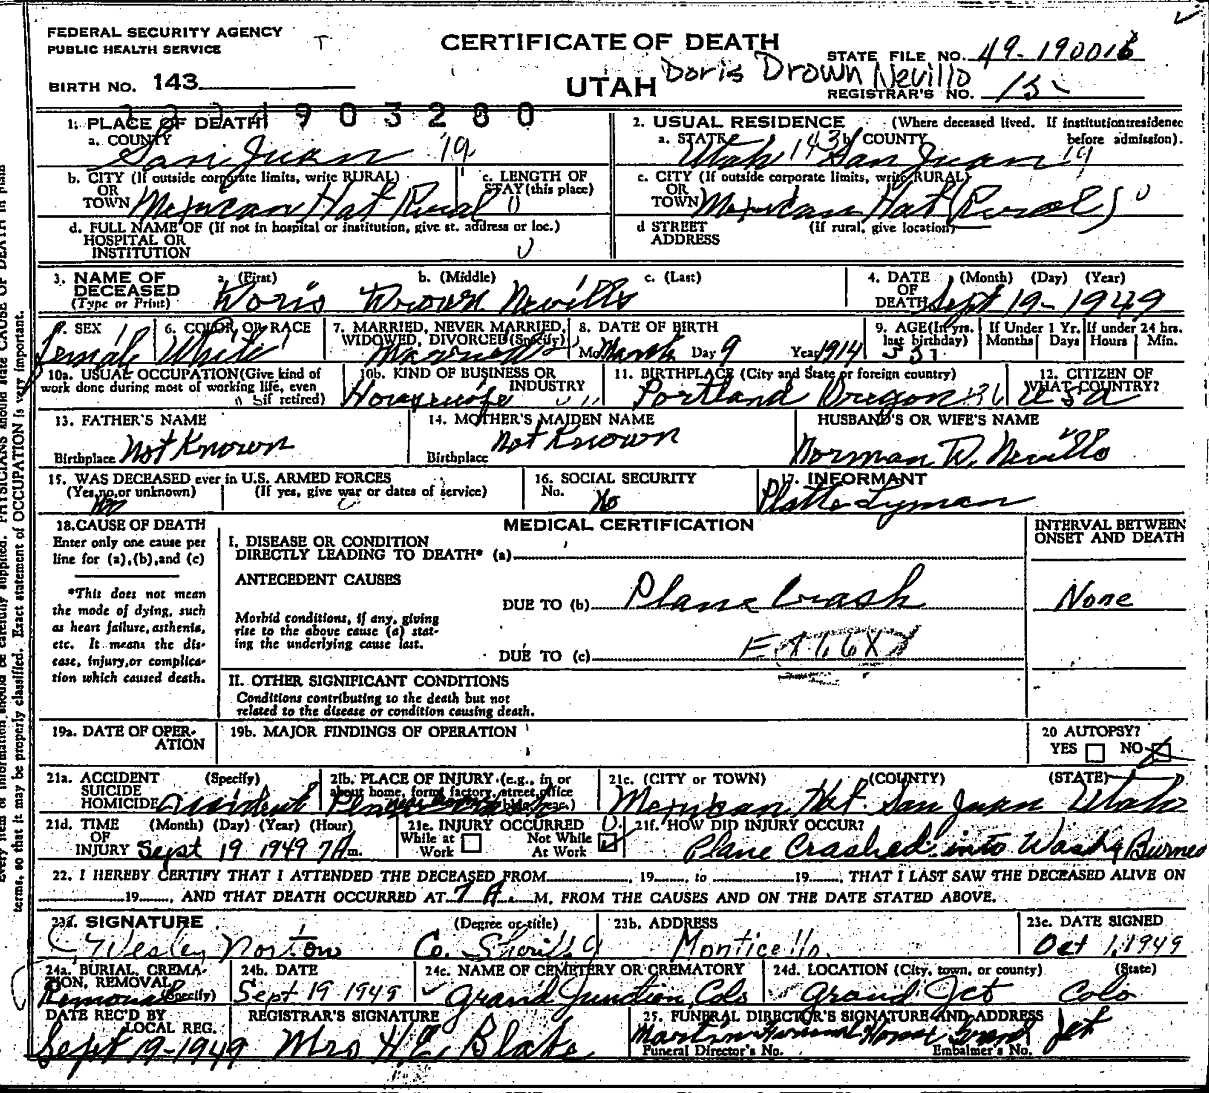 FEDERAL SECURITY AGENCY
PUBLIC HEALTH SERVICE
CERTIFICATE OF DEATH
STATE FILE NO. 49-190016
BIRTH NO. 143
UTAH Doris Drown Nevills
REGISTRAR'S NO. 15
1903280
1. PLACE OF DEATH
a. COUNTY San Juan 19
2. USUAL RESIDENCE (Where deceased lived. If institution: residence before admission).
a. STATE Utah 143 b. COUNTY San Juan 19
b. CITY (If outside corporate limits, write RURAL) OR TOWN Mexican Hat Rural
c. LENGTH OF STAY (this place)
c. CITY (If outside corporate limits, write RURAL) OR TOWN Mexican Hat (Rural) 0
d. FULL NAME OF (If not in hospital or institution, give st. address or loc.) HOSPITAL OR INSTITUTION
d STREET ADDRESS (If rural, give location)
3. NAME OF DECEASED (Type or Print)
a. (First) b. (Middle) c. (Last)
Doris Drown Nevills
4. DATE OF DEATH (Month) (Day) (Year)
Sept 19-1949
5. SEX Female
6. COLOR OR RACE White
7. MARRIED, NEVER MARRIED, WIDOWED, DIVORCED (Specify) Married
8. DATE OF BIRTH Mo. March Day 9 Year 1914
9. AGE (In yrs. last birthday)
If Under 1 Yr. Months Days
If under 24 hrs. Hours Min.
10a. USUAL OCCUPATION (Give kind of work done during most of working life, even if retired)
10b. KIND OF BUSINESS OR INDUSTRY
Housewife
11. BIRTHPLACE (City and State or foreign country)
Portland Oregon
12. CITIZEN OF WHAT COUNTRY?
USA
13. FATHER'S NAME
Not Known
Birthplace
14. MOTHER'S MAIDEN NAME
Not Known
Birthplace
HUSBAND'S OR WIFE'S NAME
Norman D. Nevills
15. WAS DECEASED ever in U.S. ARMED FORCES
(Yes, no, or unknown) (If yes, give war or dates of service)
no
16. SOCIAL SECURITY No. No
17. INFORMANT
Platte Lyman
18. CAUSE OF DEATH
Enter only one cause per line for (a), (b), and (c)
*This does not mean the mode of dying, such as heart failure, asthenia, etc. It means the disease, injury, or complication which caused death.
MEDICAL CERTIFICATION
INTERVAL BETWEEN ONSET AND DEATH
I. DISEASE OR CONDITION DIRECTLY LEADING TO DEATH* (a)
ANTECEDENT CAUSES
DUE TO (b) Plane Crash
None
Morbid conditions, if any, giving rise to the above cause (a) stating the underlying cause last.
DUE TO (c)
II. OTHER SIGNIFICANT CONDITIONS
Conditions contributing to the death but not related to the disease or condition causing death.
19a. DATE OF OPERATION
19b. MAJOR FINDINGS OF OPERATION
20 AUTOPSY?
YES NO
21a. ACCIDENT SUICIDE HOMICIDE (Specify)
Accident
21b. PLACE OF INJURY (e.g., in or about home, farm, factory, street, office bldg., etc.)
21c. (CITY or TOWN) (COUNTY) (STATE)
Mexican Hat San Juan Utah
21d. TIME OF INJURY (Month) (Day) (Year) (Hour)
Sept 19 1949 7 A m.
21e. INJURY OCCURRED
While at Work Not While At Work
21f. HOW DID INJURY OCCUR?
Plane Crashed into Wash & Burned
22. I HEREBY CERTIFY THAT I ATTENDED THE DECEASED FROM , 19 , to 19 , THAT I LAST SAW THE DECEASED ALIVE ON
19 , AND THAT DEATH OCCURRED AT 7 A. M, FROM THE CAUSES AND ON THE DATE STATED ABOVE.
23a. SIGNATURE (Degree or title)
Wesley Norton Co. Sheriff
23b. ADDRESS
Monticello
23c. DATE SIGNED
Oct 1, 1949
24a. BURIAL, CREMATION, REMOVAL (Specify)
Removal
24b. DATE
Sept 19 1949
24c. NAME OF CEMETERY OR CREMATORY
Grand Junction, Colo
24d. LOCATION (City, town, or county) (State)
Grand Jct Colo
DATE REC'D BY LOCAL REG.
Sept 19-1949
REGISTRAR'S SIGNATURE
Mrs H. E. Blake
25. FUNERAL DIRECTOR'S SIGNATURE AND ADDRESS
Martin Funeral Home Grand Jct
Funeral Director's No. Embalmer's No.